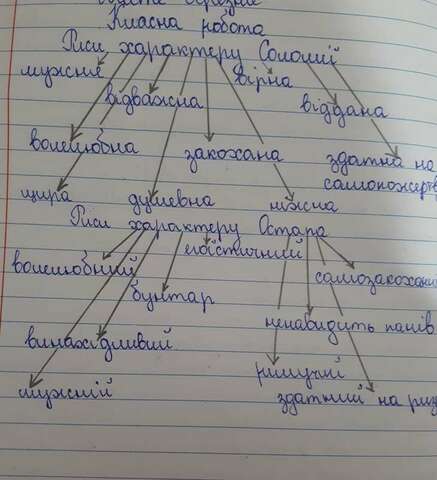 Класна робота
Риси характеру Соломії
мужнє вірна
відважна віддана
волелюбна закохана здатна на
самопожертв
щира душевна ніжна
Риси характеру Остапа
волелюбний егоїстичний самозакохани
бунтар
ненавидить панів
винахідливий
рішучий
мужній здатний на риз